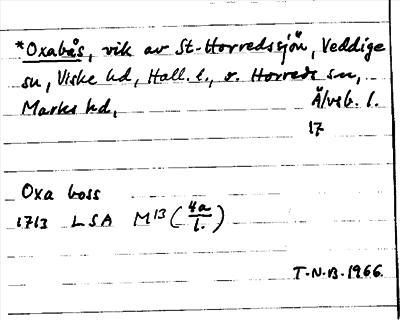 *Oxabås, vik av St. Horredssjön, Veddige
sn, Viske hd, Hall. l., o. Horreds sn,
Marks hd, Älvsb. l.
17
Oxa boss
1713 LSA M13 (4a/1.)
T.N.B. 1966.